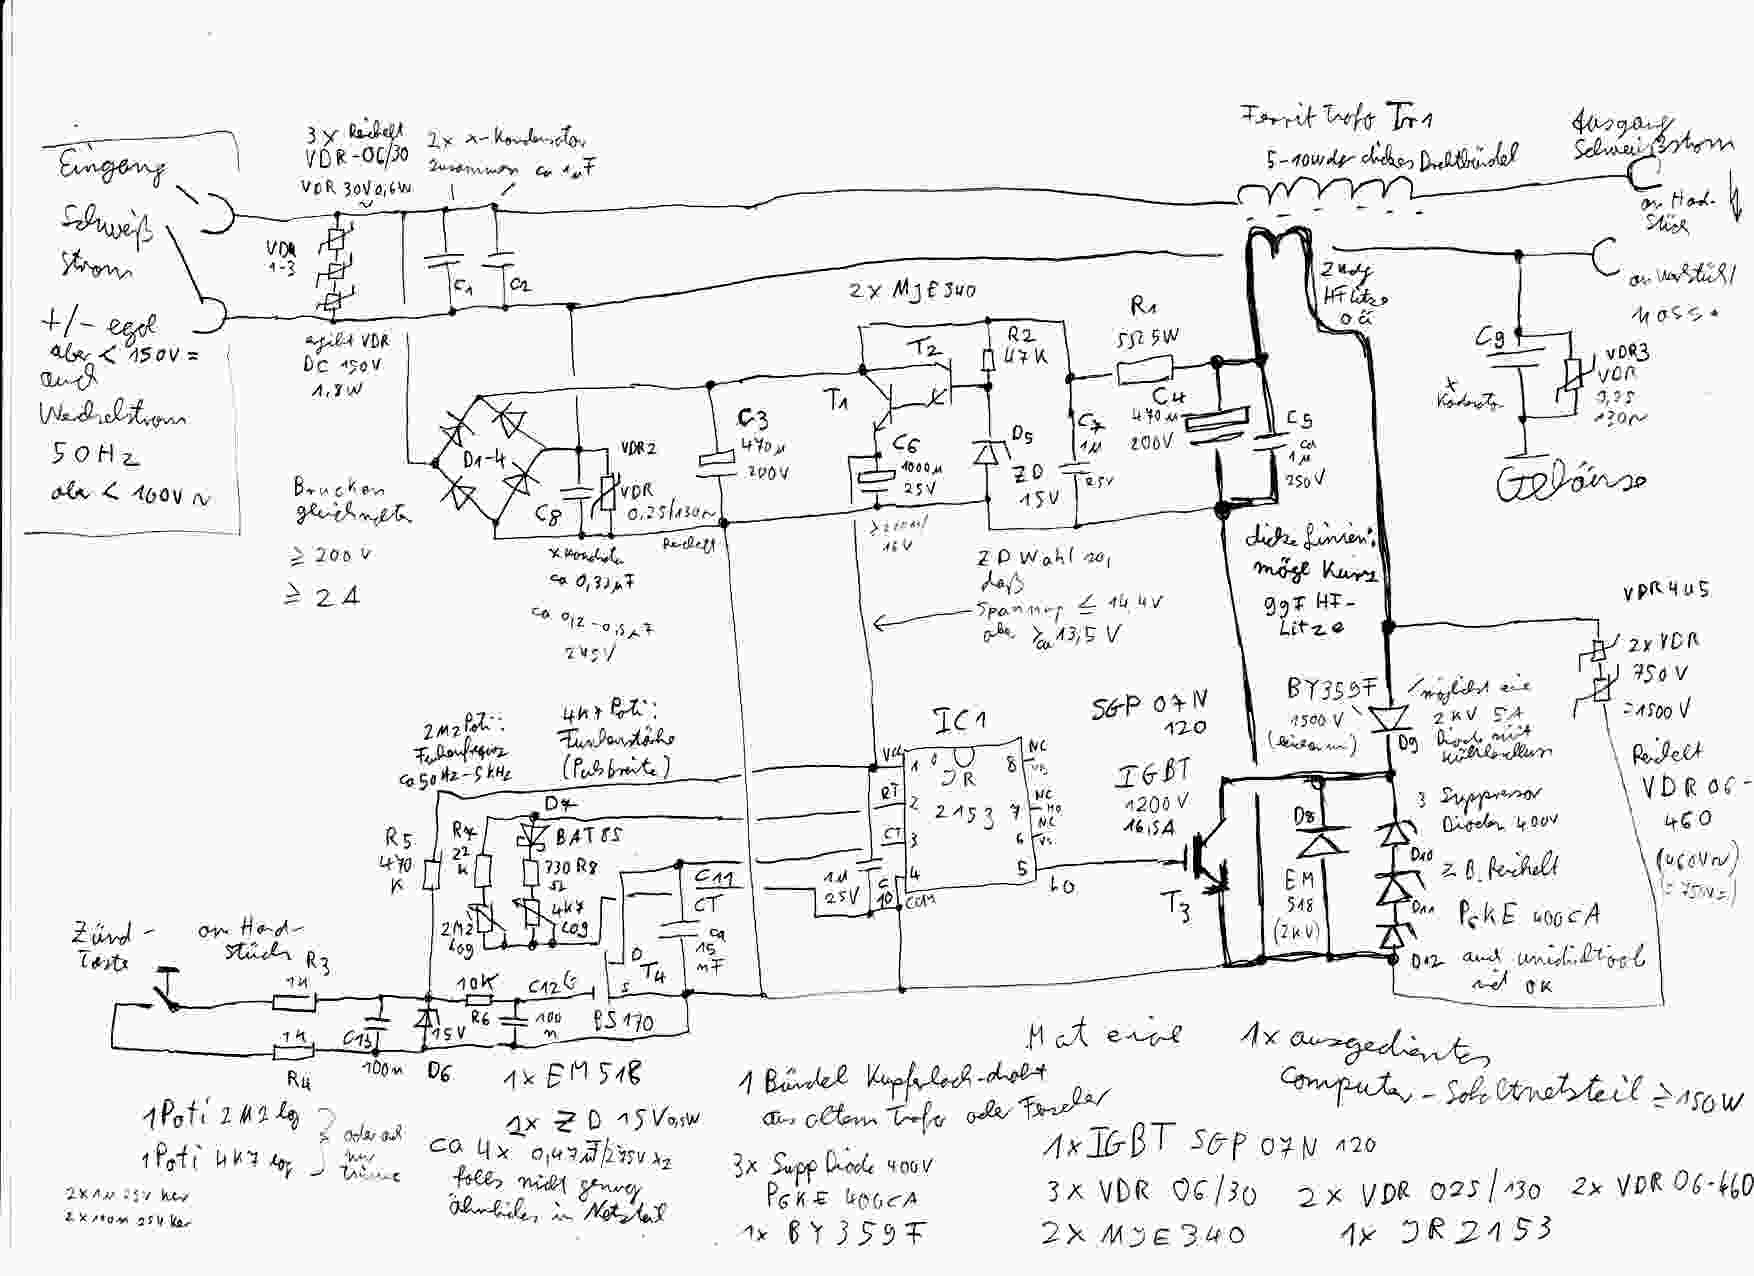 Eingang
Schweiß
strom
+/- egal
aber < 150V =
auch
Wechselstrom
50Hz
aber < 100V ~
3x Reichelt
VDR-06/30
VDR 30V 0,6W
2x x-Kondensator
zusammen ca 1µF
VDR
1-3
C1
C2
ergibt VDR
DC 150V
1,8W
Ferrit trafo Tr1
5-10wdg dickes Drahtbündel
Ausgang
Schweißstrom
an Hand-
stück
2wdg
HF Litze
o ä
Masse
C9
x
VDR3
VDR
0,25
130~
Gehäuse
2x MJE340
T2
T1
R2
47K
R1
5Ω 5W
C3
470µ
200V
C4
470µ
200V
C5
ca
1µ
250V
C6
1000µ
25V
C7
1µ
25V
D5
ZD
15V
D1-4
Brücken
gleichrichter
≥ 200V
≥ 2A
C8
VDR2
VDR
0,25/130~
Reichelt
x Kondensator
ca 0,33µF
ca 0,2-0,5µF
245V
16V
ZD Wahl so,
daß
Spannung ≤ 14,4V
aber ≥ ca 13,5V
dicke Linien:
mögl kurz
ggf HF-
Litze
VDR 4u5
2x VDR
750V
=1500V
Reichelt
VDR 06-
460
(460V~)
(=750V=)
BY359F
1500V
D9
möglichst eine
2KV 5A
Diode mit
SGP 07N
120
IGBT
1200V
16,5A
T3
D8
EM
518
(2KV)
3 Suppressor
Dioden 400V
D10
z B. Reichelt
D11
P6KE 400CA
D12
auch unidirektional
ist OK
2M2 Poti:
Funkenfrequenz
ca 50Hz-5kHz
4K7 Poti:
Funkenstärke
(Pulsbreite)
IC1
IR
2153
VCC
1
RT
2
CT
3
4
COM
8
NC
VB
7
NC
HO
6
NC
VS
5
LO
R5
470
K
R7
22
K
D7
BAT85
330 R8
Ω
2M2
log
4K7
log
C11
CT
ca
15
nF
1µ
25V
C
10
Zünd-
Taste
am Hand-
stück
R3
1K
1K
R4
C13
100n
15V
D6
10K
R6
C12
100
n
G
D
T4
S
BS170
1x EM518
1x ZD 15V 0,5W
ca 4x 0,47µF/275V x2
falls nicht genug
ähnliches in Netzteil
1 Poti 2M2 log
1 Poti 4K7 log
oder auch
nur
2x 1µ 25V ker
2x 100n 25V ker
Material
1x ausgedientes
Computer-Schaltnetzteil ≥150W
1 Bündel Kupferlack-draht
aus altem Trafo oder Fernseher
3x Supp Diode 400V
P6KE 400CA
1x BY359F
1x IGBT SGP 07N 120
3x VDR 06/30
2x VDR 025/130
2x VDR 06-460
2x MJE340
1x IR2153